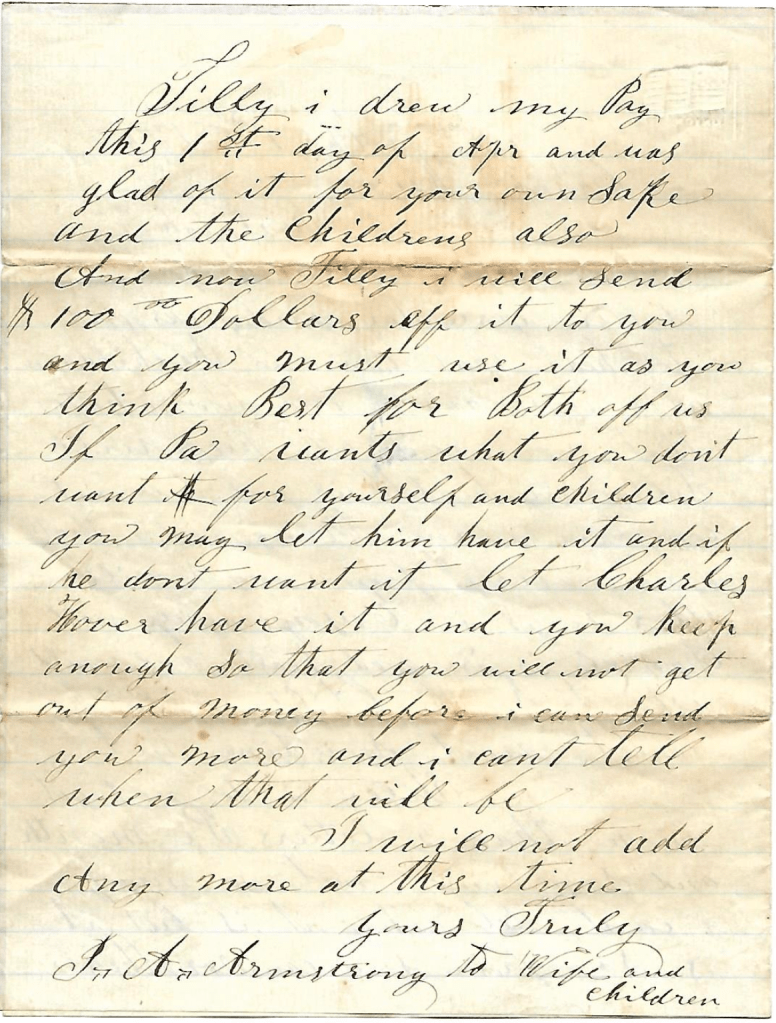 Tilly i drew my Pay
this 1st day of Apr and was
glad of it for your own Sake
and the Childrens also
And now Tilly i will Send
$100 00 Dollars off it to you
and you must use it as you
think Best for Both off us
If Pa wants what you dont
want for yourself and children
you may let him have it and if
he dont want it let Charles
Hover have it and you keep
anough So that you will not get
out of money before i can Send
you more and i cant tell
when that will be
I will not add
Any more at this time
yours Truly
A. Armstrong to Wife and
children